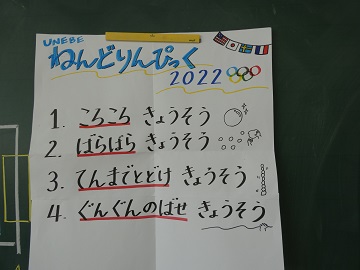 UNEBE
ねんどりんぴっく
2022
1. ころころ きょうそう
2. ばらばら きょうそう
3. てんまでとどけ きょうそう
4. ぐんぐんのばせ きょうそう